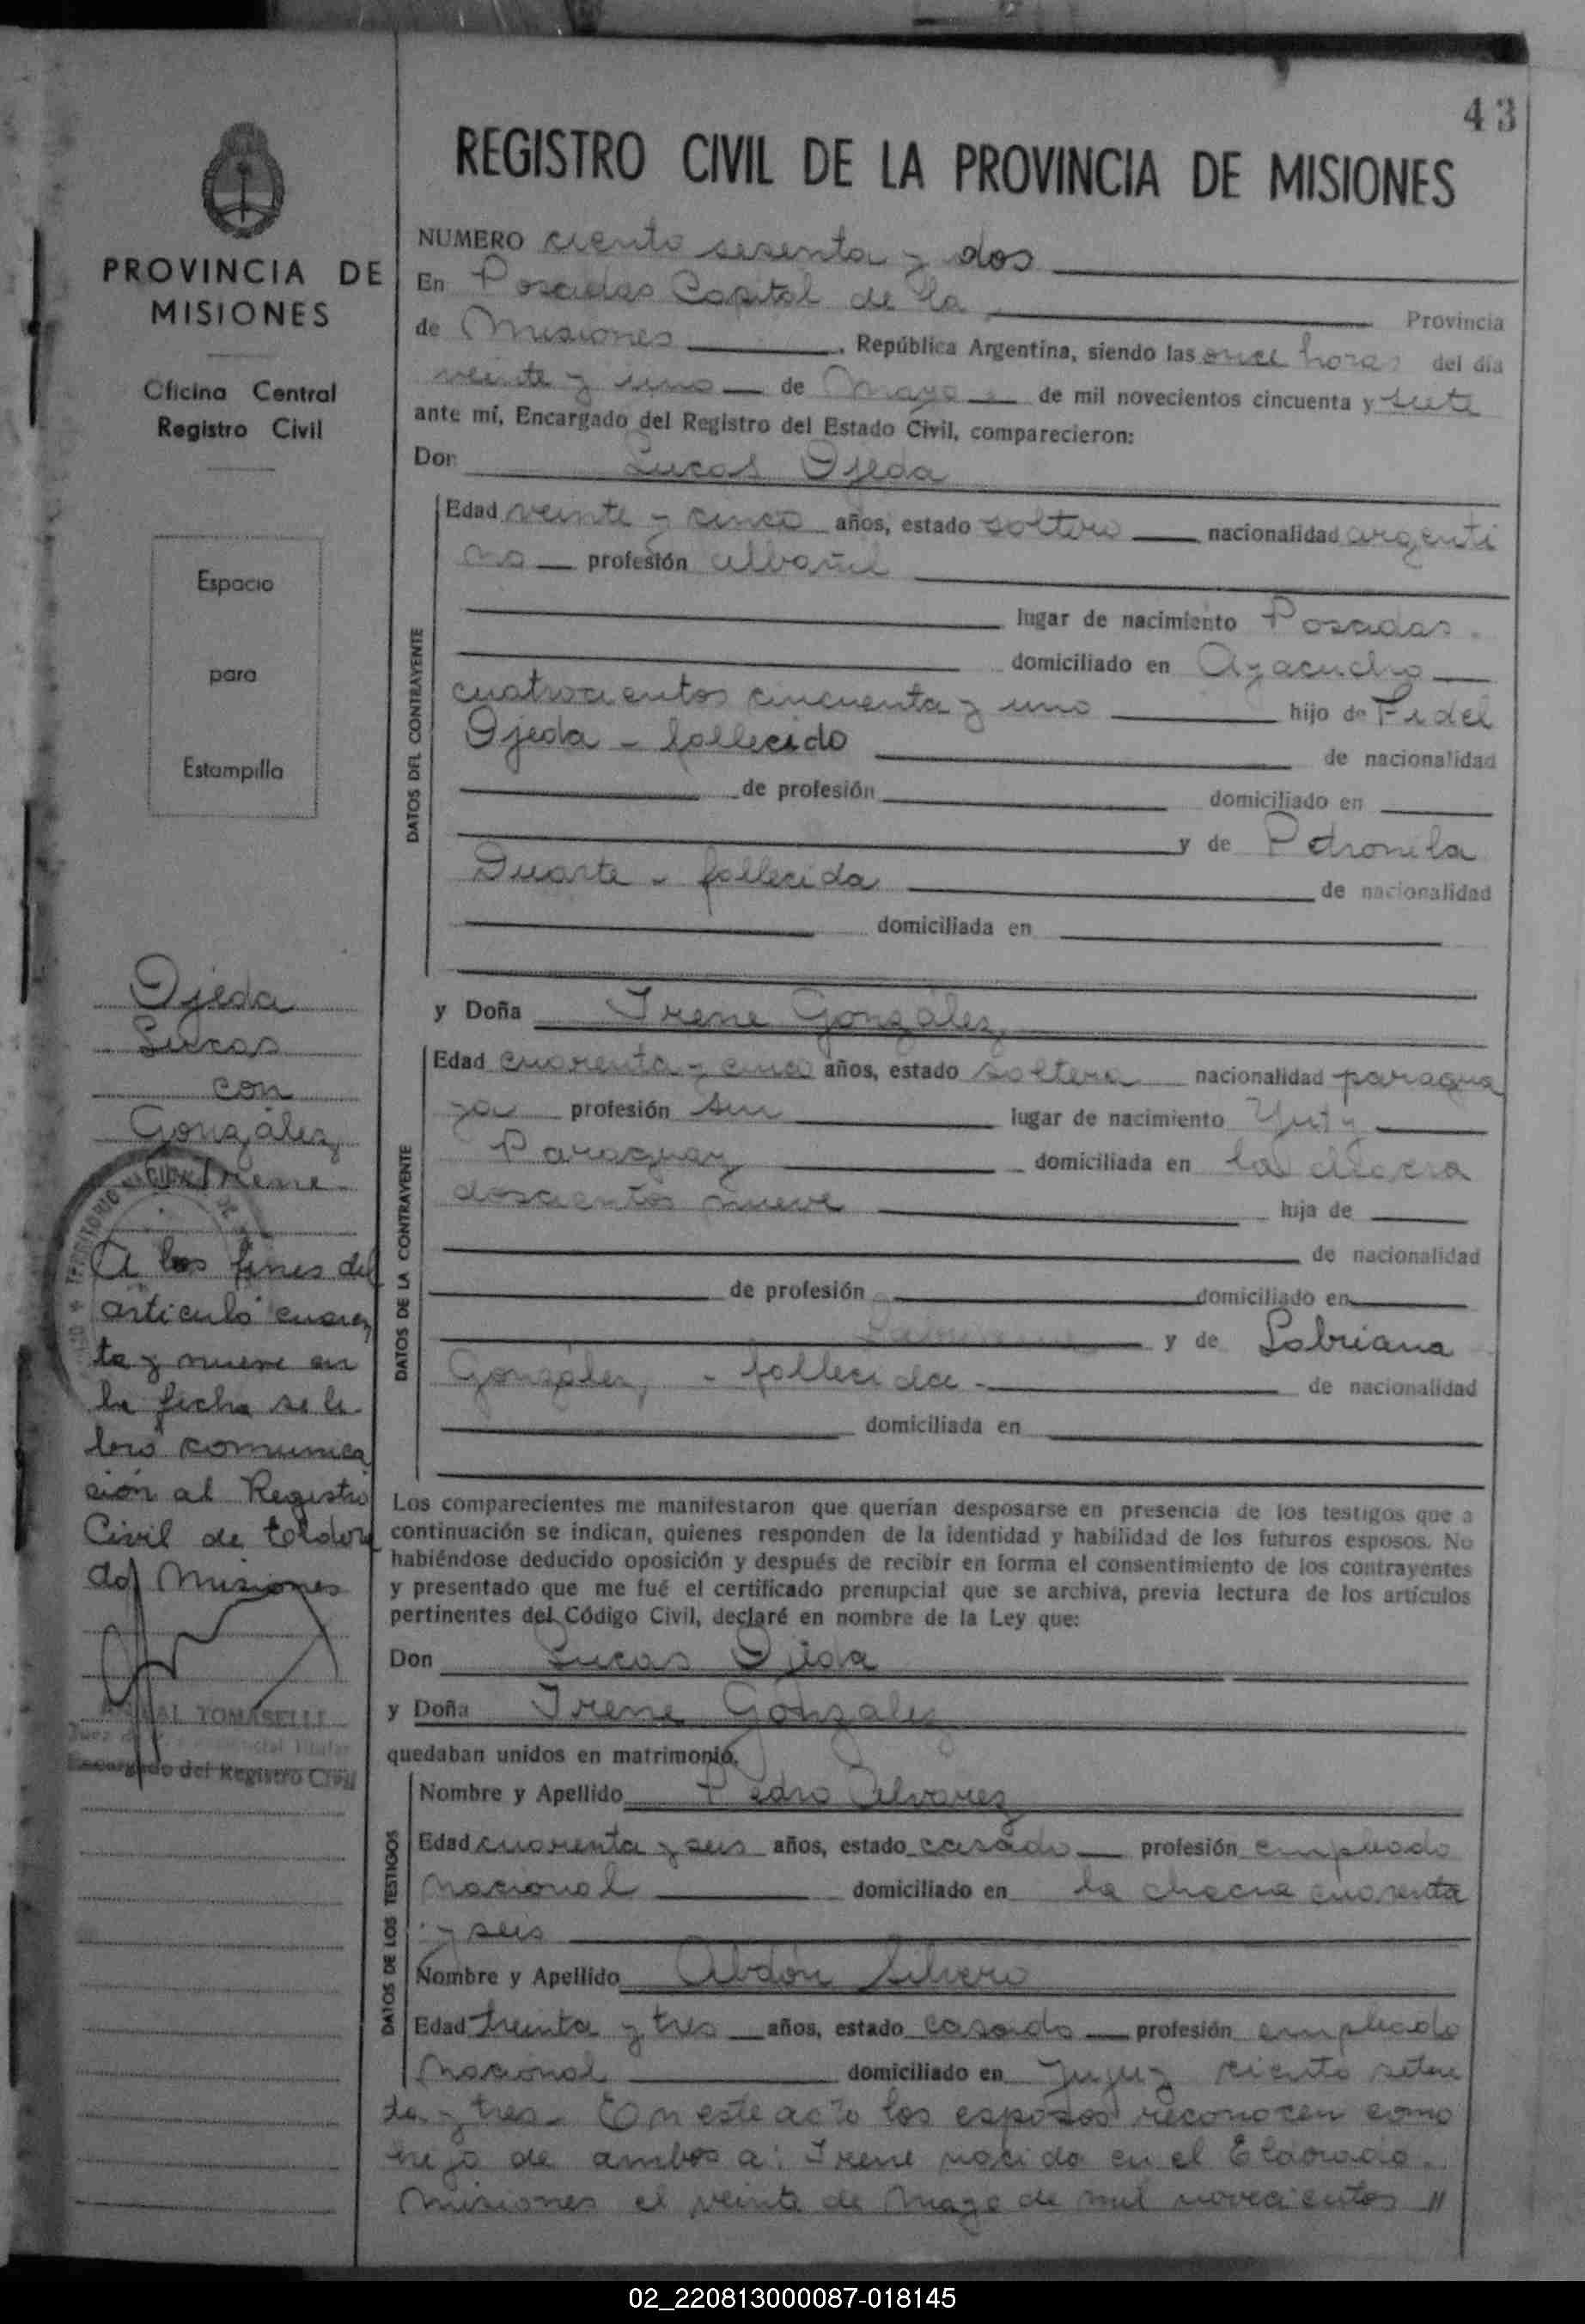 43
REGISTRO CIVIL DE LA PROVINCIA DE MISIONES
PROVINCIA DE
MISIONES
Oficina Central
Registro Civil
Espacio
para
Estampilla
Ojeda
Lucas
con
González
Irene
A los fines del
artículo cuaren
ta y nueve en
la fecha se li
bró comunica
ción al Registro
Civil de Eldora
do Misiones
TOMASELLI
Encargado del Registro Civil
NUMERO ciento sesenta y dos
En Posadas Capital de la Provincia
de Misiones, República Argentina, siendo las once horas del día
veinte y uno de Mayo de mil novecientos cincuenta y siete
ante mí, Encargado del Registro del Estado Civil, comparecieron:
Don Lucas Ojeda
DATOS DEL CONTRAYENTE
Edad veinte y cinco años, estado soltero nacionalidad argenti
no profesión albañil
lugar de nacimiento Posadas.
domiciliado en Ayacucho
cuatrocientos cincuenta y uno hijo de Fidel
Ojeda - fallecido de nacionalidad
de profesión domiciliado en
y de Petronila
Duarte - fallecida de nacionalidad
domiciliada en
y Doña Irene González
DATOS DE LA CONTRAYENTE
Edad cuarenta y cinco años, estado soltera nacionalidad paragua
ya profesión sin lugar de nacimiento Yuty
Paraguay domiciliada en la chacra
doscientos nueve hija de
de nacionalidad
de profesión domiciliado en
y de Labriana
González - fallecida - de nacionalidad
domiciliada en
Los comparecientes me manifestaron que querían desposarse en presencia de los testigos que a
continuación se indican, quienes responden de la identidad y habilidad de los futuros esposos. No
habiéndose deducido oposición y después de recibir en forma el consentimiento de los contrayentes
y presentado que me fué el certificado prenupcial que se archiva, previa lectura de los artículos
pertinentes del Código Civil, declaré en nombre de la Ley que:
Don Lucas Ojeda
y Doña Irene González
quedaban unidos en matrimonio.
DATOS DE LOS TESTIGOS
Nombre y Apellido Pedro Alvarez
Edad cuarenta y seis años, estado casado profesión empleado
nacional domiciliado en la chacra cuarenta
y seis
Nombre y Apellido Abdón Silvero
Edad treinta y tres años, estado casado profesión empleado
nacional domiciliado en Jujuy ciento seten
ta y tres. En este acto los esposos reconocen como
hijo de ambos a: Irene nacida en el Eldorado.
Misiones el veinte de Mayo de mil novecientos "
02_220813000087-018145